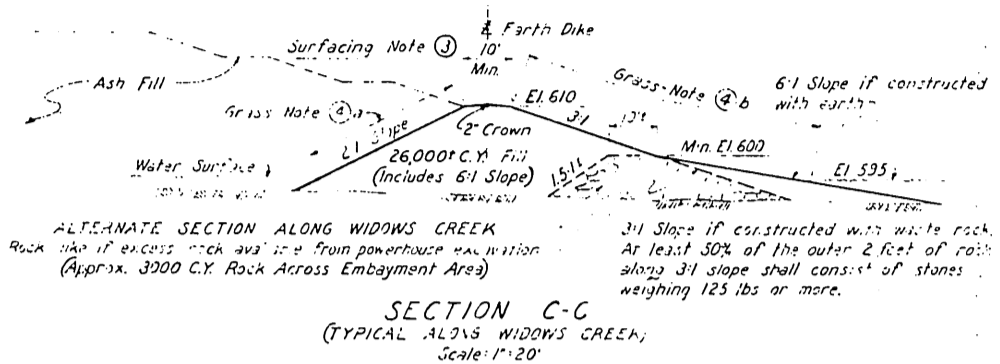 ℄ Earth Dike
Surfacing Note ③
10'
Min.
Ash Fill
Grass-Note ④b
6:1 Slope if constructed
with earth
Grass Note ④a
El. 610
2:1 Slope
2" Crown
3:1
10'±
26,000± C.Y. Fill
(Includes 6:1 Slope)
Min. El. 600
Water Surface
1.5:1±
El. 595
ALTERNATE SECTION ALONG WIDOWS CREEK
Rock dike if excess rock from powerhouse excavation
(Approx. 3000 C.Y. Rock Across Embayment Area)
3:1 Slope if constructed with waste rock.
At least 50% of the outer 2 feet of rock
along 3:1 slope shall consist of stones
weighing 125 lbs or more.
SECTION C-C
(TYPICAL ALONG WIDOWS CREEK)
Scale: 1"=20'